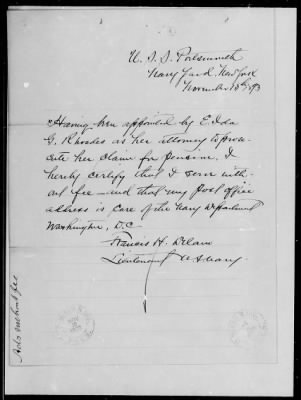 U.S.S. Portsmouth
Navy Yard, New York
November 18th, 93
Having been appointed by Edda
G. Rhoades as her attorney to prose-
cute her claim for pension, I
hereby certify that I serve with-
out fee—and that my post office
address is care of the Navy Department
Washington, D.C.
Francis H. Delano
Lieutenant U.S. Navy.
Acts without fee